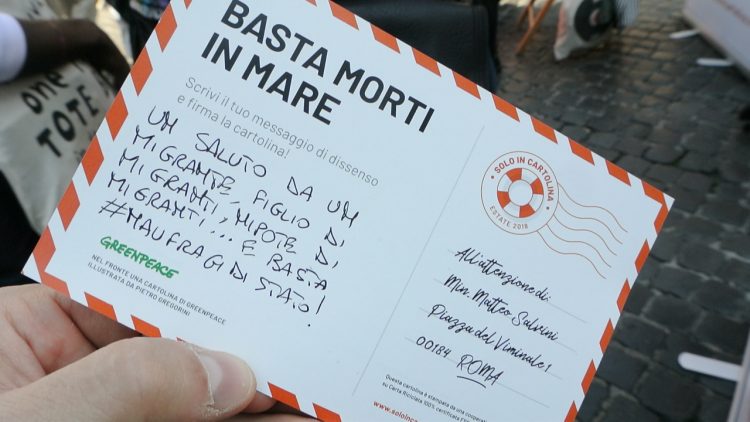 BASTA MORTI
IN MARE
Scrivi il tuo messaggio di dissenso
e firma la cartolina!
UN SALUTO DA UN
MIGRANTE, FIGLIO DI
MIGRANTI, NIPOTE DI
MIGRANTI... E BASTA
#NAUFRAGIDISTATO!
GREENPEACE
NEL FRONTE UNA CARTOLINA DI GREENPEACE
ILLUSTRATA DA PIETRO GREGORINI
SOLO IN CARTOLINA
ESTATE 2018
All'attenzione di:
Min. Matteo Salvini
Piazza del Viminale 1
00184 ROMA
Questa cartolina è stampata da una
su Carta Riciclata 100% certificata
www.soloinca
one
TOTE